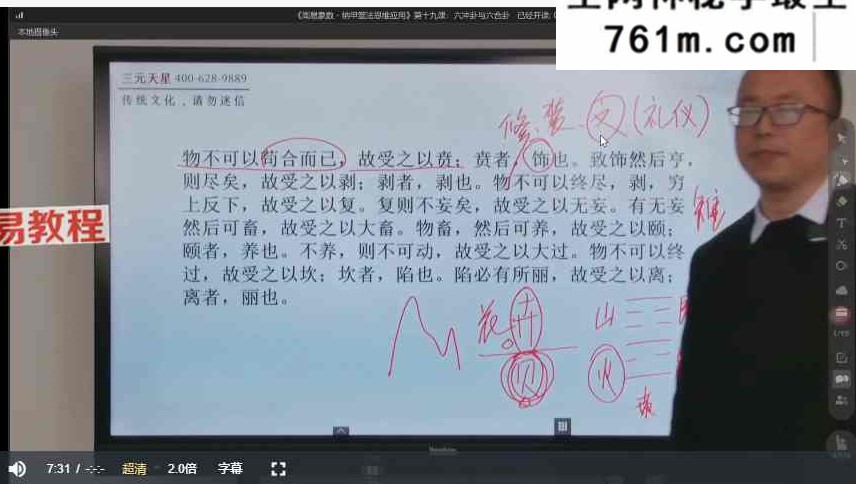 《周易象数·纳甲筮法思维应用》第十九课：六冲卦与六合卦 已经开课:
761m.com
本地摄像头
三元天星 400-628-9889
传统文化，请勿迷信
修 装 文 (礼仪)
物不可以苟合而已，故受之以贲；贲者，饰也。致饰然后亨，
则尽矣，故受之以剥；剥者，剥也。物不可以终尽，剥，穷
上反下，故受之以复。复则不妄矣，故受之以无妄。有无妄
然后可畜，故受之以大畜。物畜，然后可养，故受之以颐；
颐者，养也。不养，则不可动，故受之以大过。物不可以终
过，故受之以坎；坎者，陷也。陷必有所丽，故受之以离；
离者，丽也。
易教程
花 卉 山
贝 火
LIVE
7:31 / -:-:- 超清 2.0倍 字幕